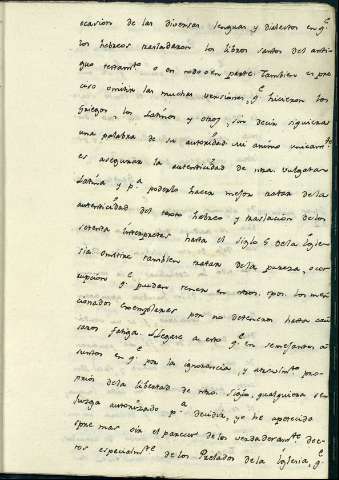 ocasion de las diversas lenguas y dialectos en q.e
los hebreos trasladaron los libros santos del anti-
guo testam.to o en todo o en parte. Tambien es pre-
ciso omitir las muchas versiones, q.e hicieron los
Griegos, los Latinos y otros, sin decir siquiera
una palabra de su autoridad. Mi animo unicam.te
es asegurar la autenticidad de ntra. vulgata
Latina, y p.a poderlo hacer mejor tratar de la
autenticidad del texto hebreo y traslacion de los
setenta interpretes hasta el siglo 5 de la Igle-
sia. Omitire tambien tratar de la pureza, o cor-
rupcion q.e puedan tener en ntros. tpos. los men-
cionados exemplares por no detenerme hasta cau-
saros fatiga. Llegase a esto q.e en semejantes a-
suntos en q.e por la ignorancia, y atrevim.to pro-
prios de la libertad de ntro. siglo, qualquiera se
juzga autorizado p.a decidir, yo he apetecido
spre mas oir el parecer de los verdaderam.te doc-
tos especialm.te de los Prelados de la Iglesia, q.e